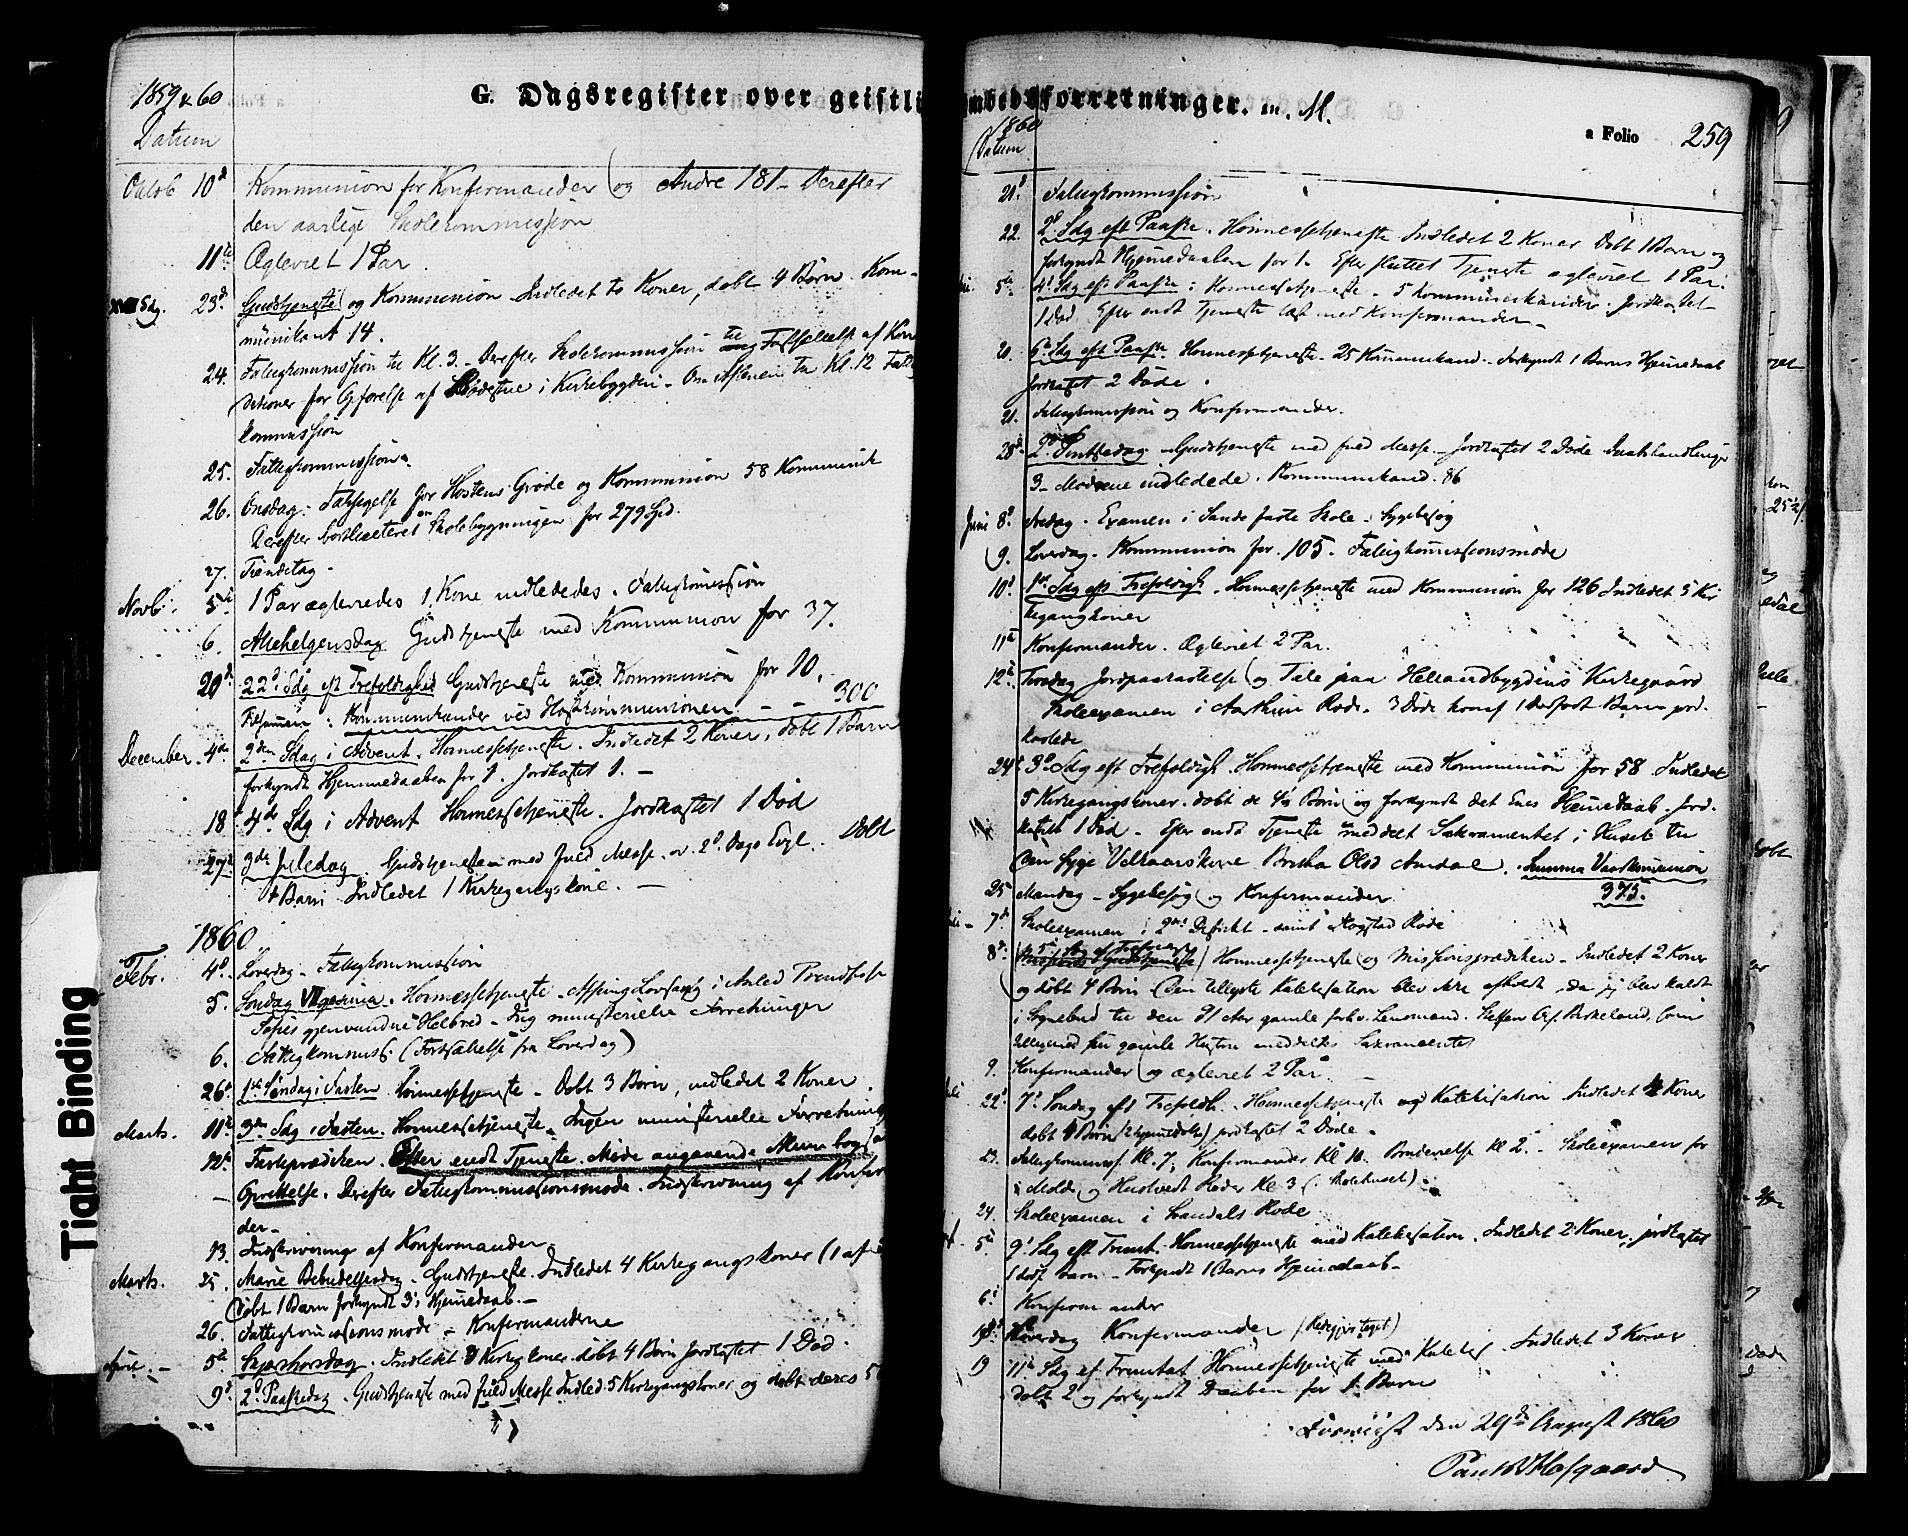 1859 & 60
G. Dagsregister over geistli
Datum
Octob 10d Kommunion for Konfirmander (og Andre 181 - Derefter
den aarlige Skolekommission
11te Ægteviet 1 Par.
Sdg. 23d Gudstjeneste og Kommunion - Indledet to Koner, døbt 4 Børn. Kom-
munikant 14.
24. Fattigkommission til Kl. 3. - Derefter Skolekommission til Fastsættelse af Kon
ditioner for Opførelse af i Kirkebygden - Om Aftenen til Kl. 12 Fatt
kommission
25. Fattigkommission.
26. Onsdag. Taksigelse for Høstens Grøde og Kommunion 58 Kommunik
Derefter bortliciteret Skolebygningen for 279 Spd.
27. Tiendetag -
Novb. 5te 1 Par ægteviedes 1 Kone indlededes. Fattigkommission
6. Allehelgensdag Gudstjeneste med Kommunion for 37.
20d 22d Sdg eft Trefoldighed Gudstjeneste med Kommunion for 10.
Tilsammen: Kommunikander ved Høstkommunionen - - 300
December. 4de 2den Sdag i Advent. Høimessetjeneste. Indledet 2 Koner, døbt 1 Barn
forkyndt Hjemmedaaben for 1. Jordkastet 1. -
18 4de Sdg i Advent Høimessetjeneste. Jordkastet 1 Død
27de 3die Juledag. Gudstjenesten med fuld Messe. ov. 2d Dags Evgl. Døbt
1 Barn Indledet 1 Kirkegangskone. -
1860.
Febr. 4d Løverdag - Fattigkommission
5. Søndag Høimessetjeneste - i Anled Prindsesse
gjenvundne Helbred - Ing ministerielle Forretninger
6. Fattigkommiss. (Fortsættelse fra Løverdag)
26d 1ste Søndag i Fasten Høimessetjeneste - Døbt 3 Børn, indledet 2 Koner.
Marts. 11te 3die Sdg i Fasten. Høimessetjeneste. Ingen ministerielle Forretning
12te Fasteprædiken. Efter endt Tjeneste Møde angaaende Almuebog
- Oprettelse. Derefter Fattigkommissionsmøde. Indskrivning af Konfir
der -
13. Indskrivning af Konfirmander -
Marts. 25. Marie Bebudelsesdag - Gudstjeneste. Indledet 4 Kirkegangskoner (1 af
Døbt 1 Barn forkyndt 3s Hjemedaab. -
26. Fattigkommissionsmøde - Konfirmanderne
April. - 5te Skjærthorsdag. Indledet 3 Kirkeg.koner døbt 4 Børn Jordkastet 1 Død.
9d 2d Paaskedag. Gudstjeneste med fuld Messe Indled. 5 Kirkegangskoner og døbt deres 5
Tight Binding
mbedsforretninger. m. M.
1860
Datum
a Folio 259
21d Fattigkommission
22. 2d Sdg eft Paaske. Høimessetjeneste Indledet 2 Koner Døbt 1 Barn og
forkyndt Hjemedaaben for 1. Efter sluttet Tjeneste ægteviet 1 Par.
5te 4d Sdg eft Paaske: Høimessetjeneste - 5 Kommunikander. Jordkastet
1 Død Efter endt Tjeneste læst med Konfirmander -
20. 6te Sdg eft Paaske. Høimessetjeneste - 25 Kommunikand - Forkyndt 1 Barns Hjemedaab
Jordkastet 2 Døde.
21. Fattigkommission og Konfirmander.
28d 2d Pintsedag. Gudstjeneste med fuld Messe - Jordkastet 2 Døde Daabshandlinger
3 - Mødrene indledede. Kommunikand. 86
Juni 8d Fredag. Examen i Sande faste Skole - Sygebesøg
9. Løverdag. Kommunion for 105. Fattigkommissionsmøde
10d 1ste Sdg eft Trefoldigh. Høimessetjeneste med Kommunion for 126 Indledet 5 Kir
kegangkoner
11te Konfirmander. Ægteviet 2 Par.
12te Tirsdag Jordpaakastelse (og Tale paa Kirkegaard
Skoleexamen i Rode. 3 Døde hvoraf 1 dødfødt Barn jord-
kastede
24d 3d Sdg eft Trefoldigh. Høimessetjeneste med Kommunion for 58 Indledet
5 Kirkegangskoner. døbt de 4s Børn og forkyndt det Enes Hjemedaab. Jord-
kastet 1 Død - Efter endt Tjeneste meddelt Sakramentet i Huset til
den syge Britha Olsd Aardal. Summa Vaarkommunion
375.
25 Mandag - Sygebesøg og Konfirmander
7d Skoleexamen i 2det Distrikt - samt Rode
8d Høimessetjeneste (og Missionsprædiken - Indledet 2 Koner
og døbt 4 Børn (Den tillyste Katekisation blev ikke afholdt, da jeg blev kaldt
i Sognebud til den 91 Aar gamle forhv. Lensmand. Steffen Birkeland, som
tilligemed sin gamle Hustru meddeltes Sakramentet
9. Konfirmander (og ægteviet 2 Par.
22d 7d Søndag eft Trefoldh. Høimessetjeneste og Katekisation Indledet 4 Koner
døbt 4 Børn (2 hjemedøbt) jordkastet 2 Døde.
23. Fattigkommiss. Kl. 7, Konfirmander Kl 10. Kl 2. - Skoleexamen for
Molde og Roder Kl 3 (i Skolehuset).
24. Skoleexamen i Rode
5te 9d Sdg eft Trinit. Høimessetjeneste med Katekisation. Indledet 2 Koner, jordkastet
1 døf. Barn - Forkyndt 1 Barns Hjemedaab -
6d Konfirmander
18d Løverdag Konfirmander
19 11te Sdg ef Trinitat. Høimessetjeneste med Katekis. Indledet 3 Koner
Døbt 2 og forkyndt Daaben for 1 Barn
den 29de August 1860